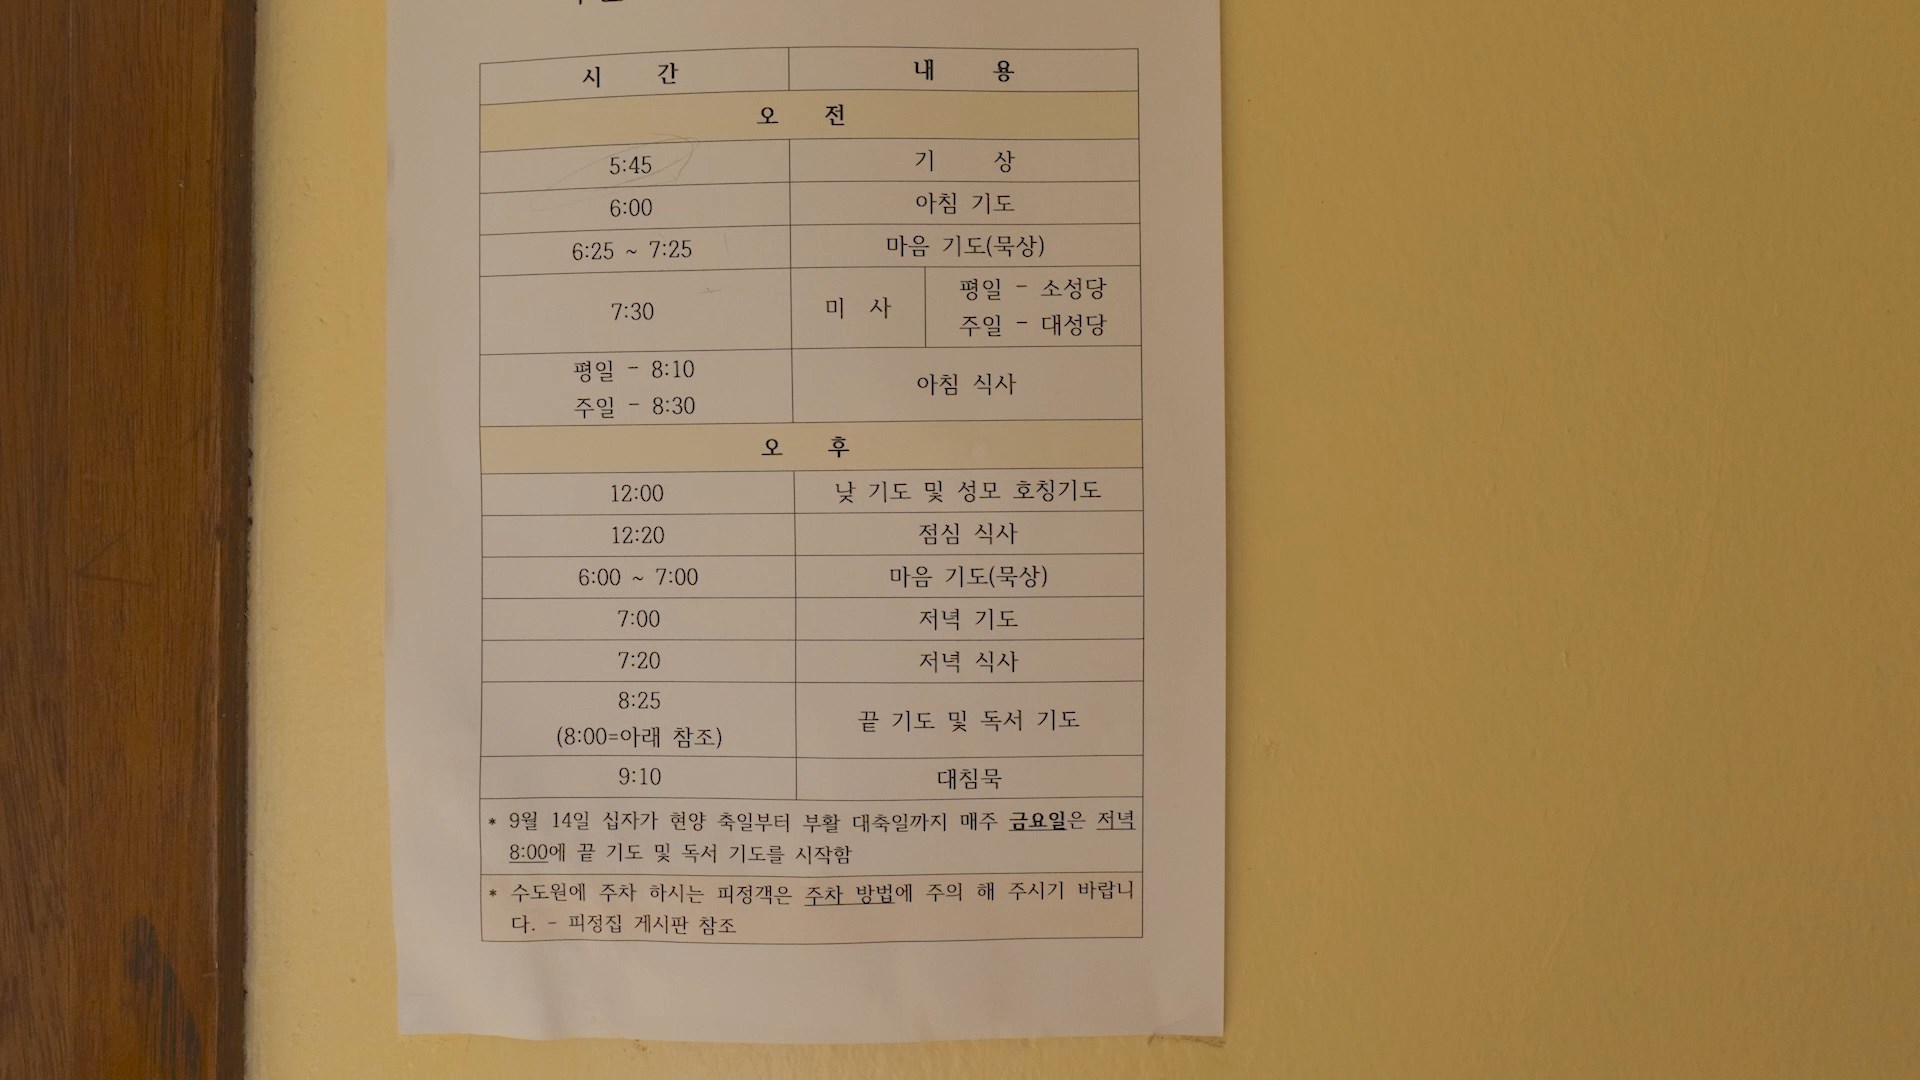 시 간 내 용
오 전
5:45 기 상
6:00 아침 기도
6:25 ~ 7:25 마음 기도(묵상)
7:30 미 사 평일 - 소성당
주일 - 대성당
평일 - 8:10 아침 식사
주일 - 8:30
오 후
12:00 낮 기도 및 성모 호칭기도
12:20 점심 식사
6:00 ~ 7:00 마음 기도(묵상)
7:00 저녁 기도
7:20 저녁 식사
8:25 끝 기도 및 독서 기도
(8:00=아래 참조)
9:10 대침묵
* 9월 14일 십자가 현양 축일부터 부활 대축일까지 매주 금요일은 저녁
8:00에 끝 기도 및 독서 기도를 시작함
* 수도원에 주차 하시는 피정객은 주차 방법에 주의 해 주시기 바랍니
다. - 피정집 게시판 참조